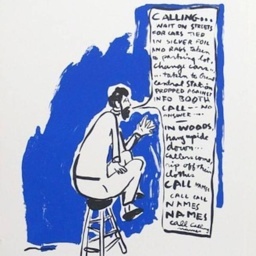 CALLING...
WAIT ON STREETS
FOR CARS TIED
IN SILVER FOIL
AND RAGS, taken
to parking lot.
change cars—
...taken to Grand
central station
PROPPED AGAINST
INFO BOOTH
CALL—... NO
ANSWER—.
IN WOODS,
hang upside
down...
callers come,
rip off their
clothes
CALL NAMES
CALL CALL
NAMES
NAMES
call call